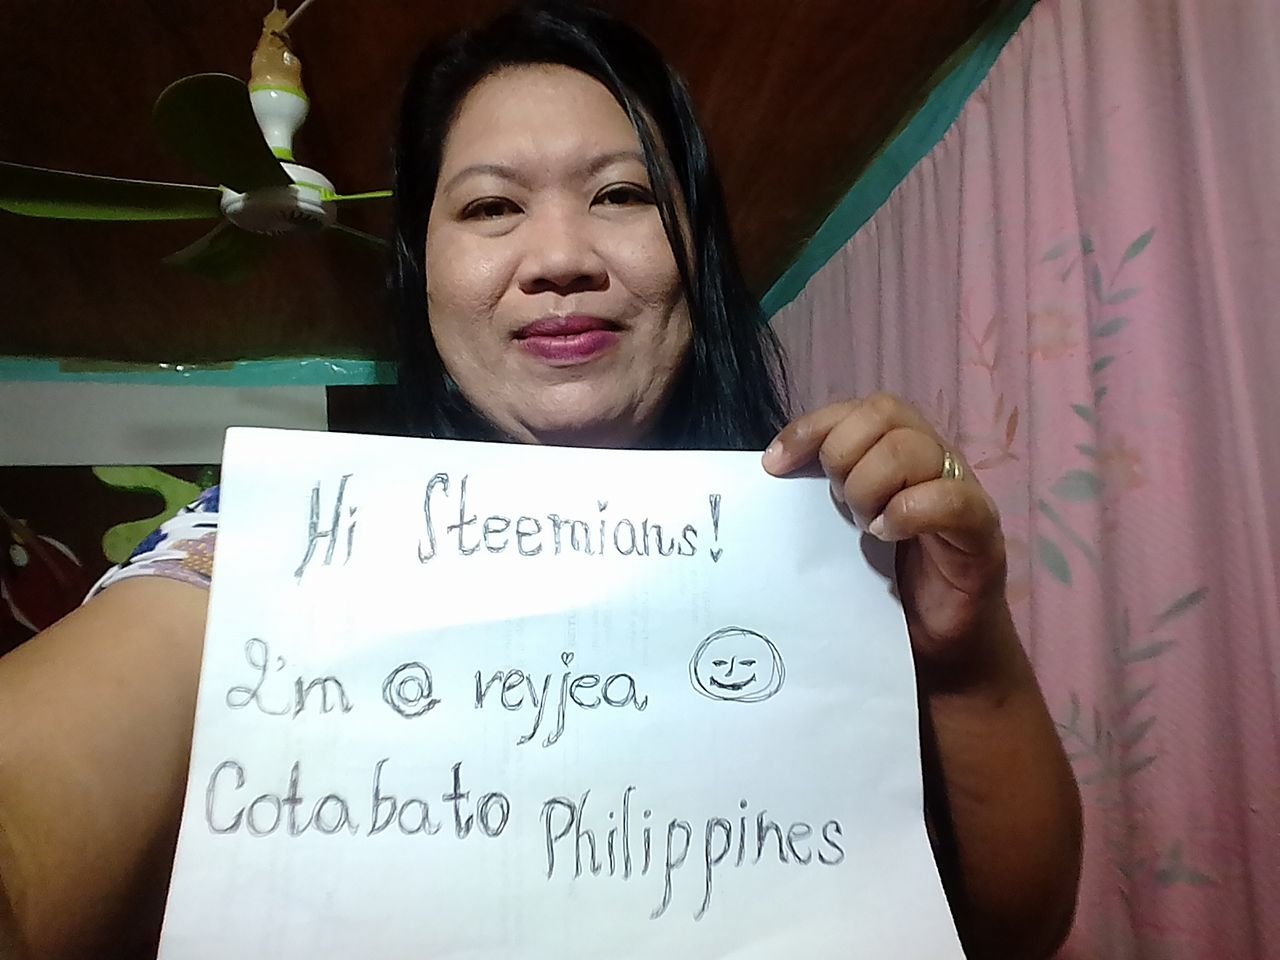 Hi Steemians!
I'm @reyjea
Cotabato Philippines